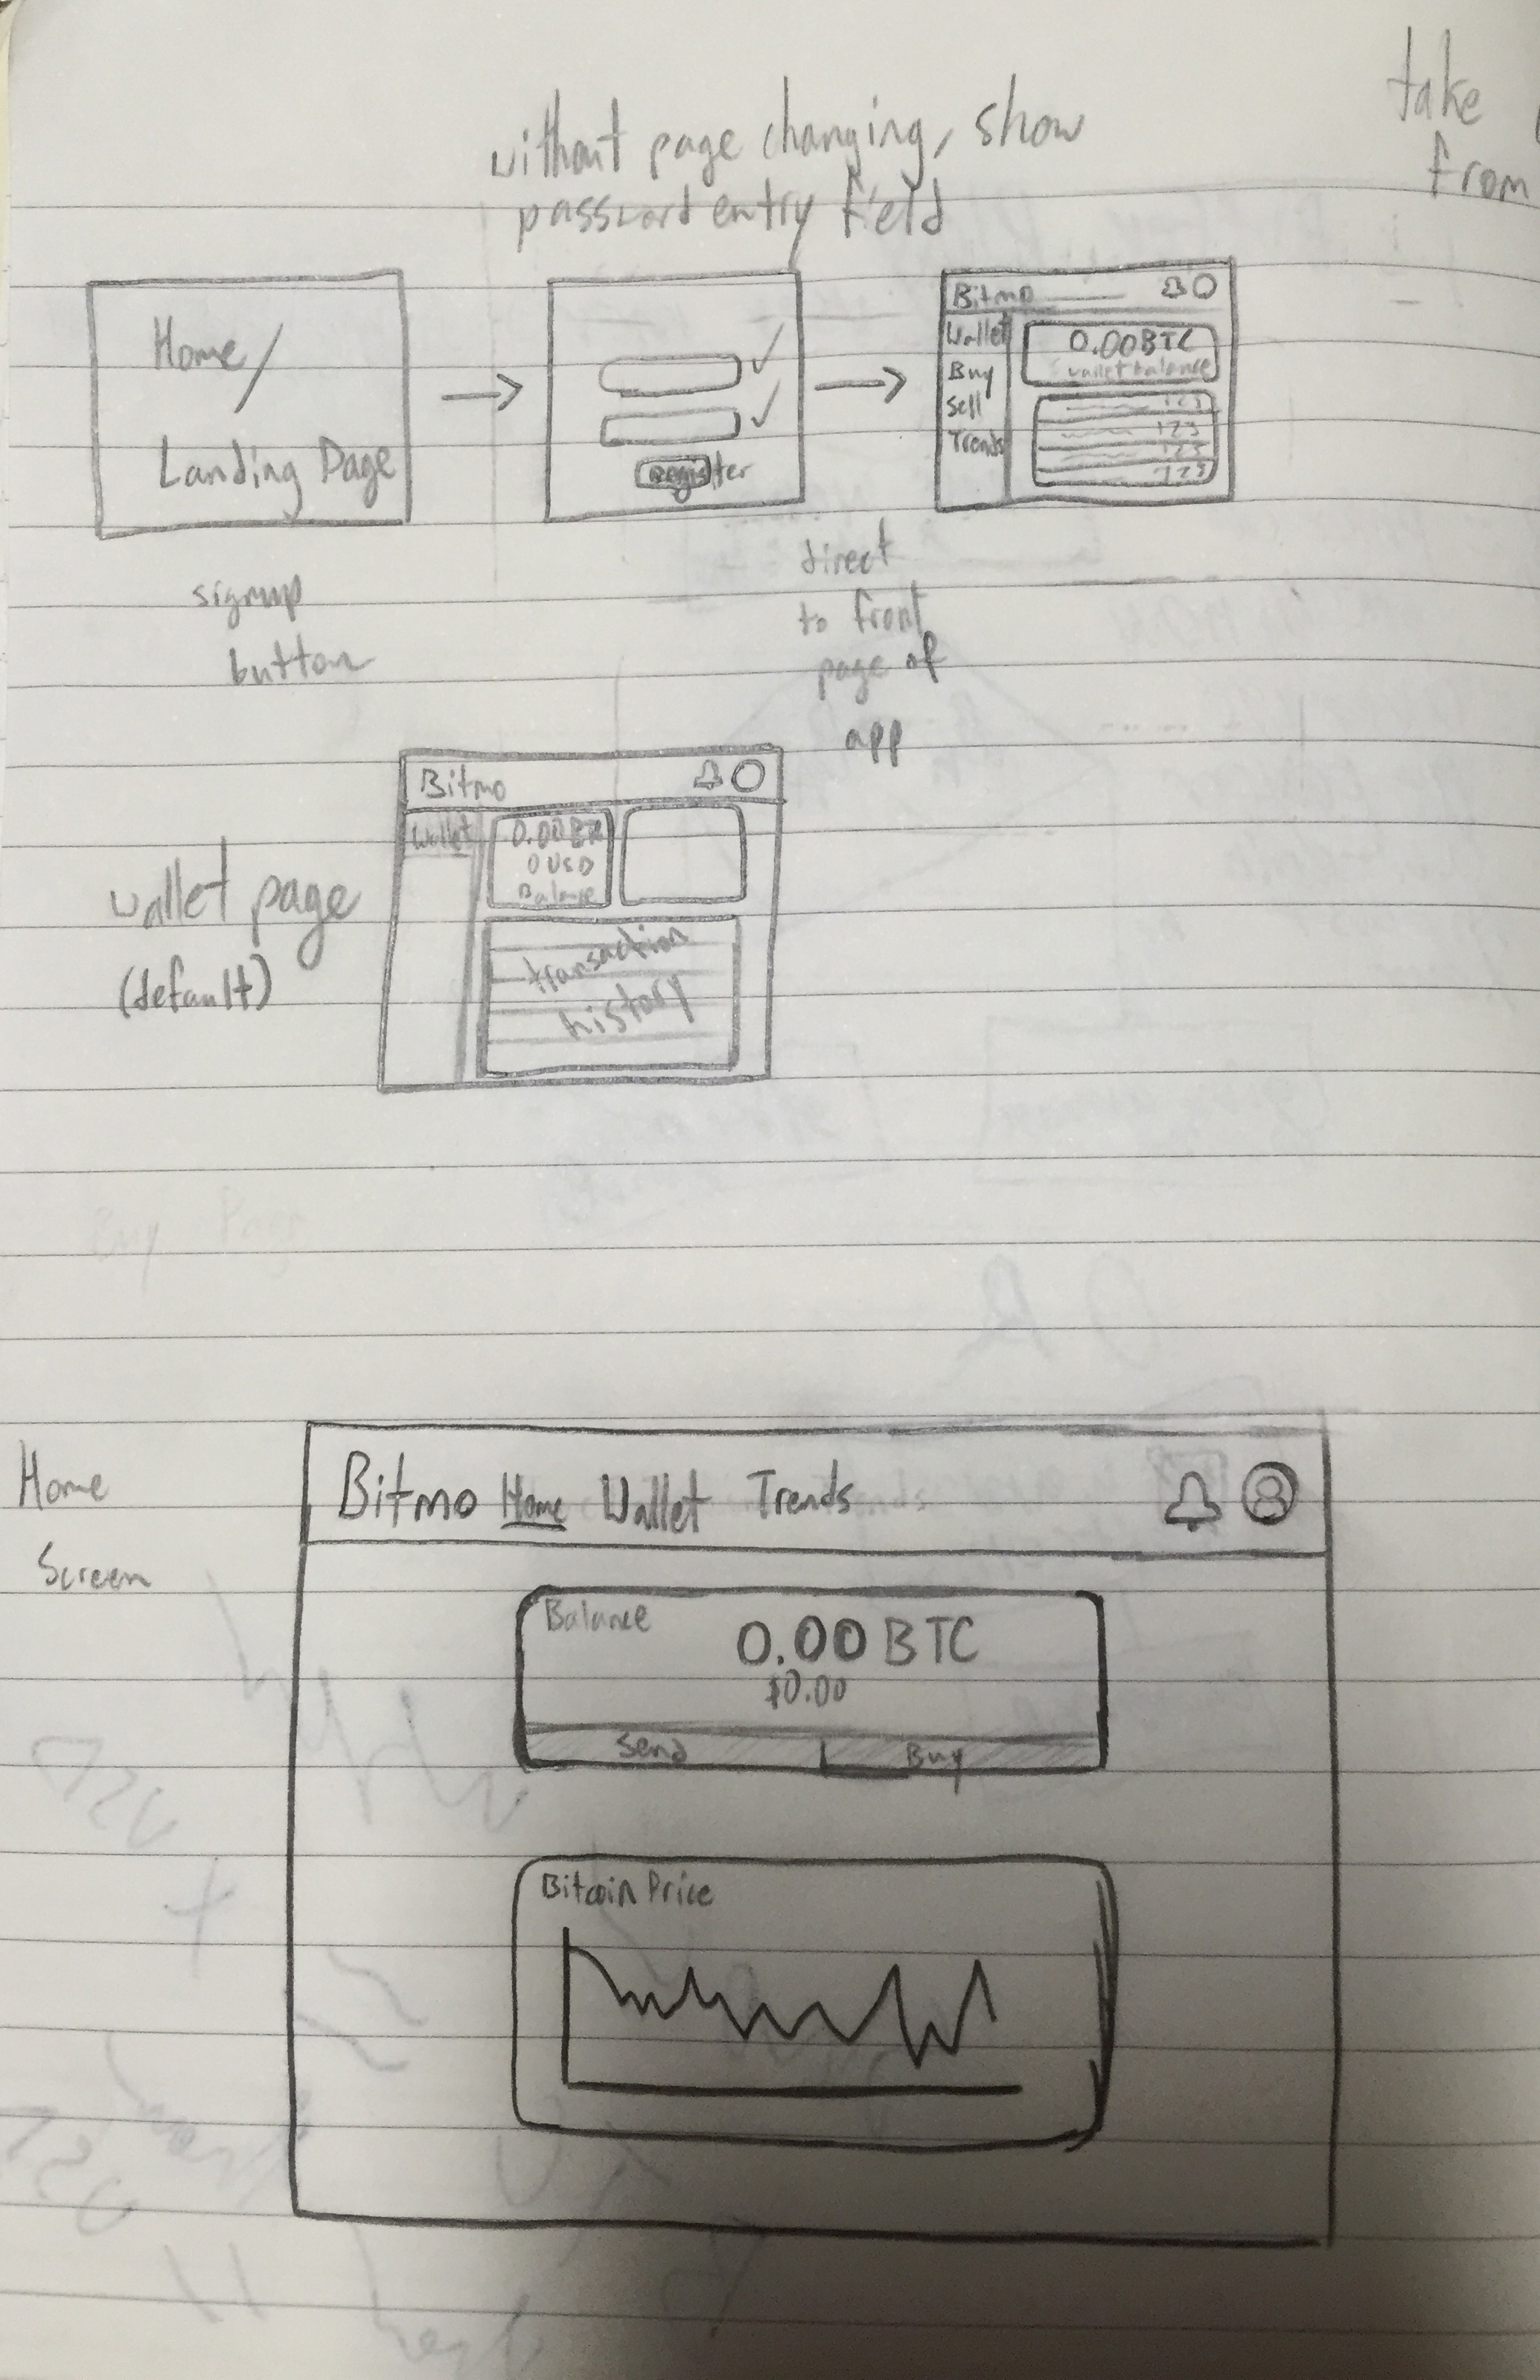 without page changing, show
password entry field
take
from
Home/
Landing Page
register
Bitmo
Wallet
Buy
Sell
Trends
0.00 BTC
wallet balance
123
123
123
123
signup
button
direct
to front
page of
app
wallet page
(default)
Bitmo
Wallet
0.00 BTC
0 USD
Balance
transaction
history
Buy Page
OR
Home
Screen
Bitmo Home Wallet Trends
Balance
0.00 BTC
$0.00
Send Buy
Bitcoin Price